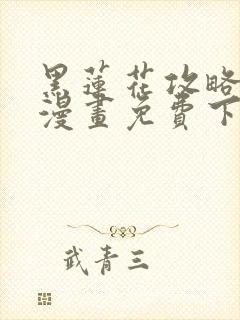 黑蓮花攻略
漫畫免費下
武青三